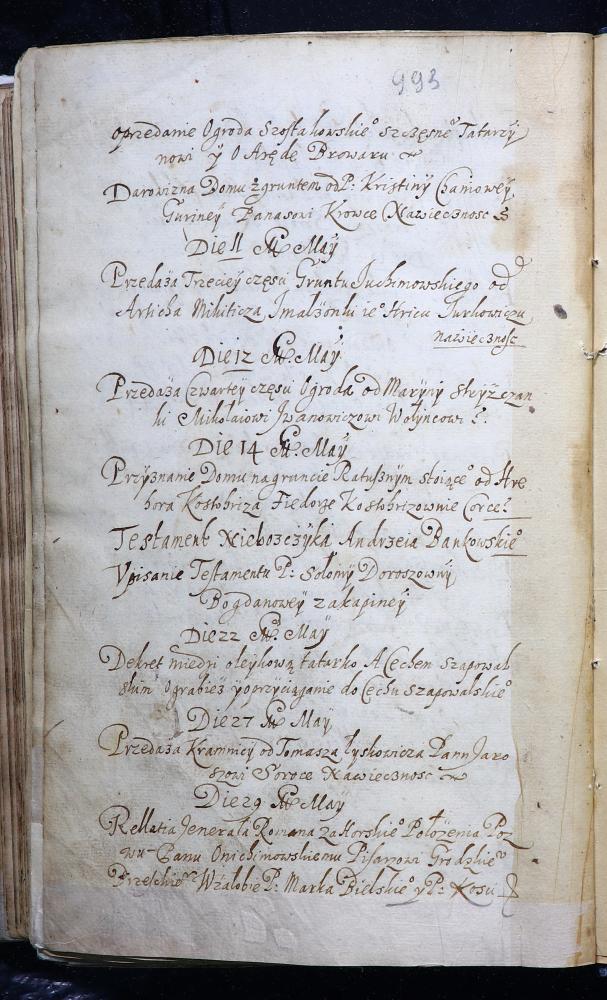 993
oprzedanie Ogroda Szostakowskie° szczęsne° Tatarzy
nowi y O Aręde Browaru
Darowizna Domu z gruntem od P: Kristiny Chamowey
Guriney Panasowi Krowce Nawiecznosc
Die 11 May
Przedaża Trzeciey częsci Gruntu Juchimowskiego od
Articha Mikiticza Jmalżonki ie° Hricu Jurkowiczu
nawiecznosc
Die 12 May
Przedaża Czwartey częsci Ogroda od Maryny Stryżczan
ki Mikolaiowi Jwanowiczowi Wolyncowi
Die 14 May
Przyznanie Domu na gruncie Ratusznym stoiące° od Hre
hora Kostobriza Fiedorze Kostobrizownie Corce
Testament Nieboszczyka Andrzeia Bankowskie°
Vpisanie Testamentu P: Solomy Doroszowny
Bogdanowey zakapiney
Die 22 May
Dekret miedzi oleykową tatarko A Cechem Szapowal
skim Ograbież y oprzyciąganie do Cechu Szapowalskie°
Die 27 May
Przedaża Kramnicy od Tomasza Łyskowicza Pann Jaro
szowi Soroce Nawiecznosc
Die 29 May
Rellatia Jenerała Romana Zahorskie° Położenia Poz
wu Panu Onichimowskiemu Pisarzowi Grodzkie°
Brzeskie° Wżałobie P: Marka Bielskie° y P: Kosci